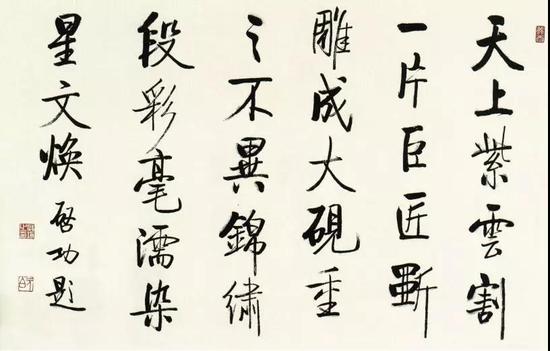 天上紫雲割
一片巨匠斲
雕成大硯重
之不異錦繡
段彩毫濡染
星文煥 啓功題